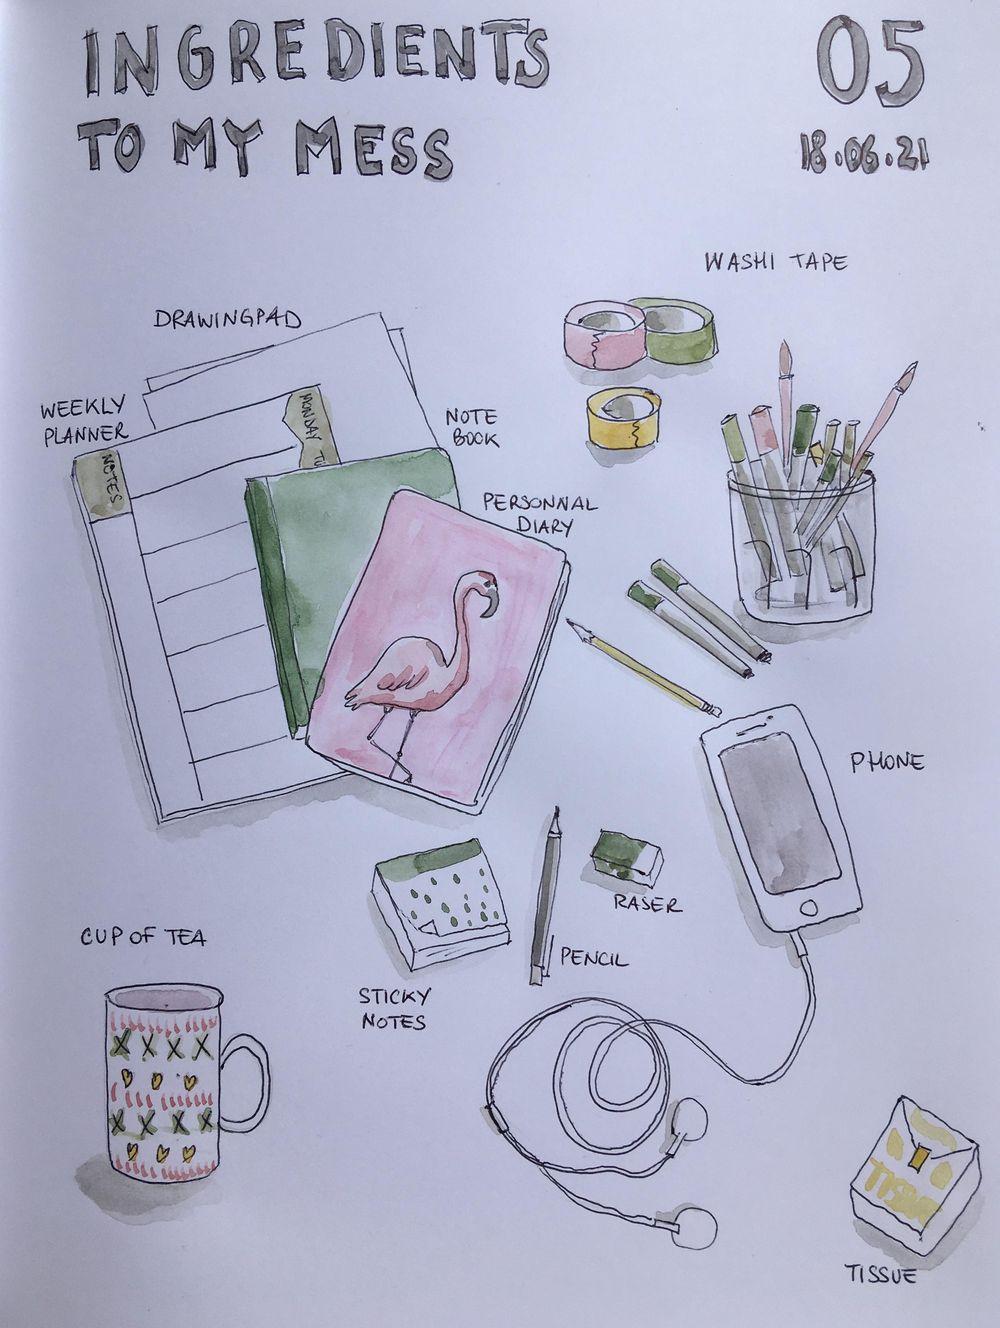 INGREDIENTS
TO MY MESS
05
18.06.21
WASHI TAPE
DRAWINGPAD
WEEKLY
PLANNER
NOTES
MONDAY TU
NOTE
BOOK
PERSONNAL
DIARY
PHONE
RASER
PENCIL
STICKY
NOTES
CUP OF TEA
TISSUE
TISSUE